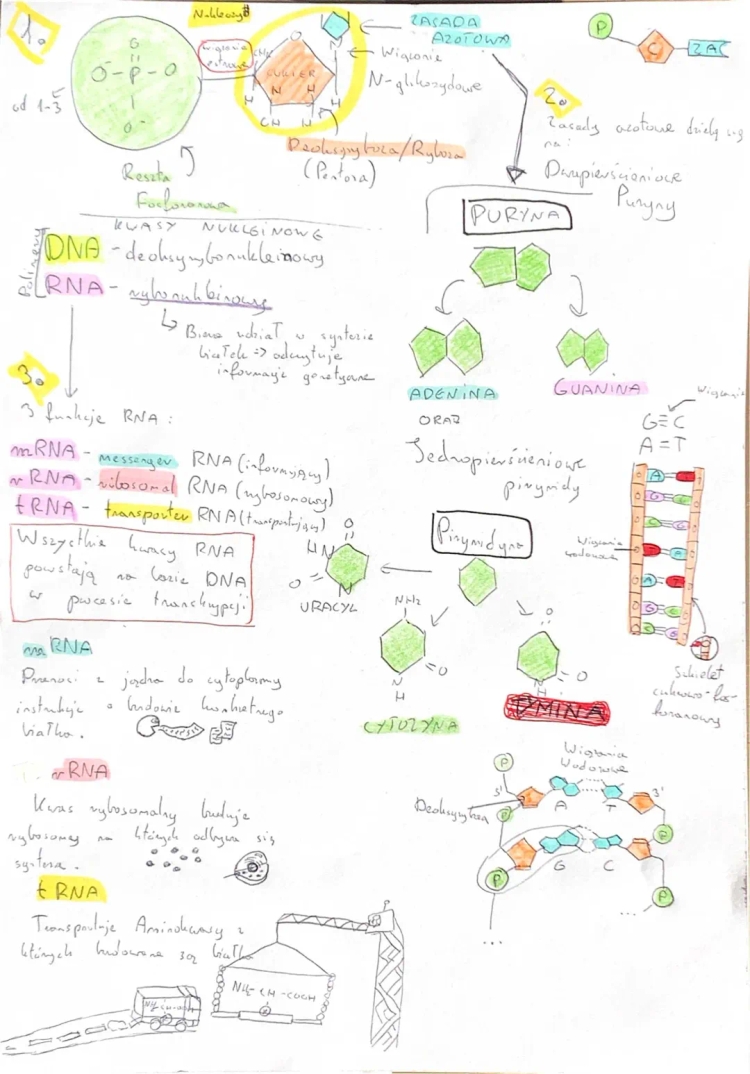 1.
Nukleozyd
ZASADA
AZOTOWA
Wiązanie
N-glikozydowe
wiązanie
estrowe
CH₂
O
N
CUKIER
H
H
H
H
OH
H
O
O⁻ - P - O
O⁻
od 1-3
Deoksyryboza/Ryboza
(Pentoza)
Reszta
Fosforanowa
P
C
ZA
2.
Zasady azotowe dzielą się
na:
Dwupierścieniowe
Puryny
PURYNA
KWASY NUKLEINOWE
Polimery
DNA - deoksyrybonukleinowy
RNA - rybonukleinowy
Bierze udział w syntezie
białek => odczytuje
informacje genetyczne
3.
3 funkcje RNA:
mRNA - messenger RNA (informujący)
rRNA - ribosomal RNA (rybosomowy)
tRNA - transporter RNA (transportujący)
Wszystkie kwasy RNA
powstają na bazie DNA
w procesie transkrypcji
ADENINA
GUANINA
ORAZ
Jednopierścieniowe
pirymidy
Pirymidyna
wiązania
G≡C
A=T
Wiązania
wodorowe
A
G
C
G
T
A
A
T
G
C
Szkielet
cukrowo-fos-
foranowy
O
HN
O
N
URACYL
NH₂
O
N
H
CYTOZYNA
O
O
N
H
TYMINA
mRNA
Przenosi z jądra do cytoplazmy
instrukcje o budowie konkretnego
białka.
rRNA
Kwas rybosomalny buduje
rybosomy na których odbywa się
synteza.
tRNA
Transportuje Aminokwasy z
których budowane są białka
NH₂-CH-COOH
Wiązania
Wodorowe
P
5'
3'
Deoksyryboza
A
T
P
P
G
C
P
P
...
...